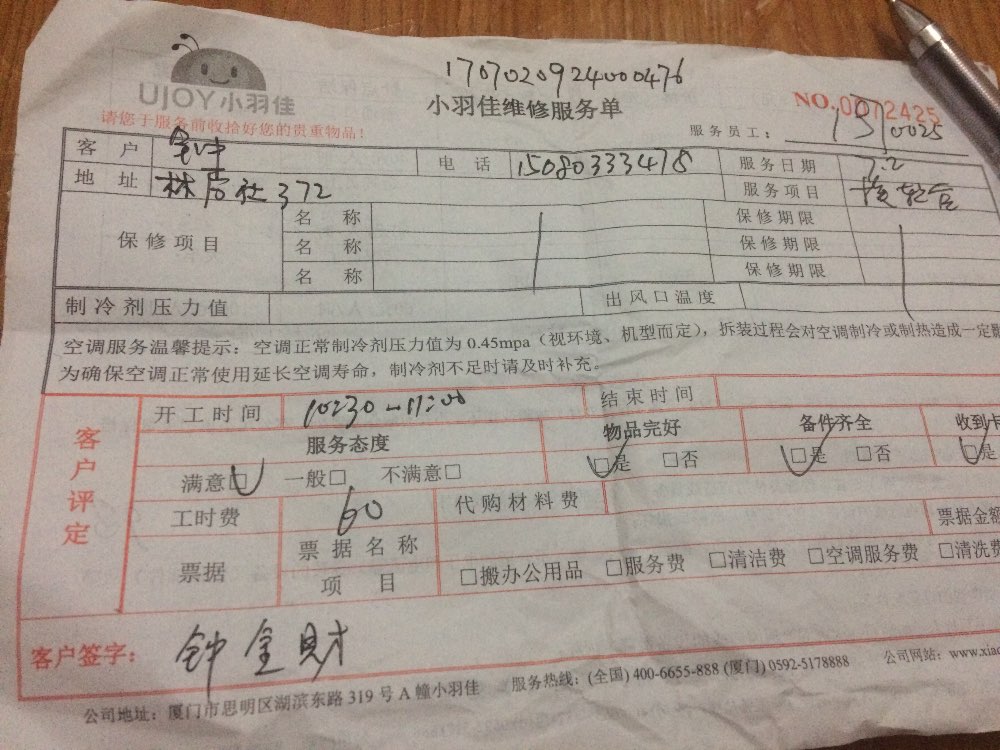 1707020924000476
UJOY小羽佳
小羽佳维修服务单
NO.0072425
请您于服务前收拾好您的贵重物品！
服务员工：
客户 电话 15080333478 服务日期 7.2
地址 林后社372 服务项目
保修项目 名称 保修期限
名称 保修期限
名称 保修期限
制冷剂压力值 出风口温度
空调服务温馨提示：空调正常制冷剂压力值为 0.45mpa（视环境、机型而定），拆装过程会对空调制冷或制热造成一定
为确保空调正常使用延长空调寿命，制冷剂不足时请及时补充。
客户评定
开工时间 10:30-11:00 结束时间
服务态度 物品完好 备件齐全 收到
满意□ 一般□ 不满意□ □是 □否 □是 □否 □是
工时费 60 代购材料费
票据 票据名称 票据金额
项目 □搬办公用品 □服务费 □清洁费 □空调服务费 □清洗费
客户签字： 钟金财
公司地址：厦门市思明区湖滨东路 319 号 A 幢小羽佳 服务热线：(全国) 400-6655-888 (厦门) 0592-5178888 公司网站：www.xiao